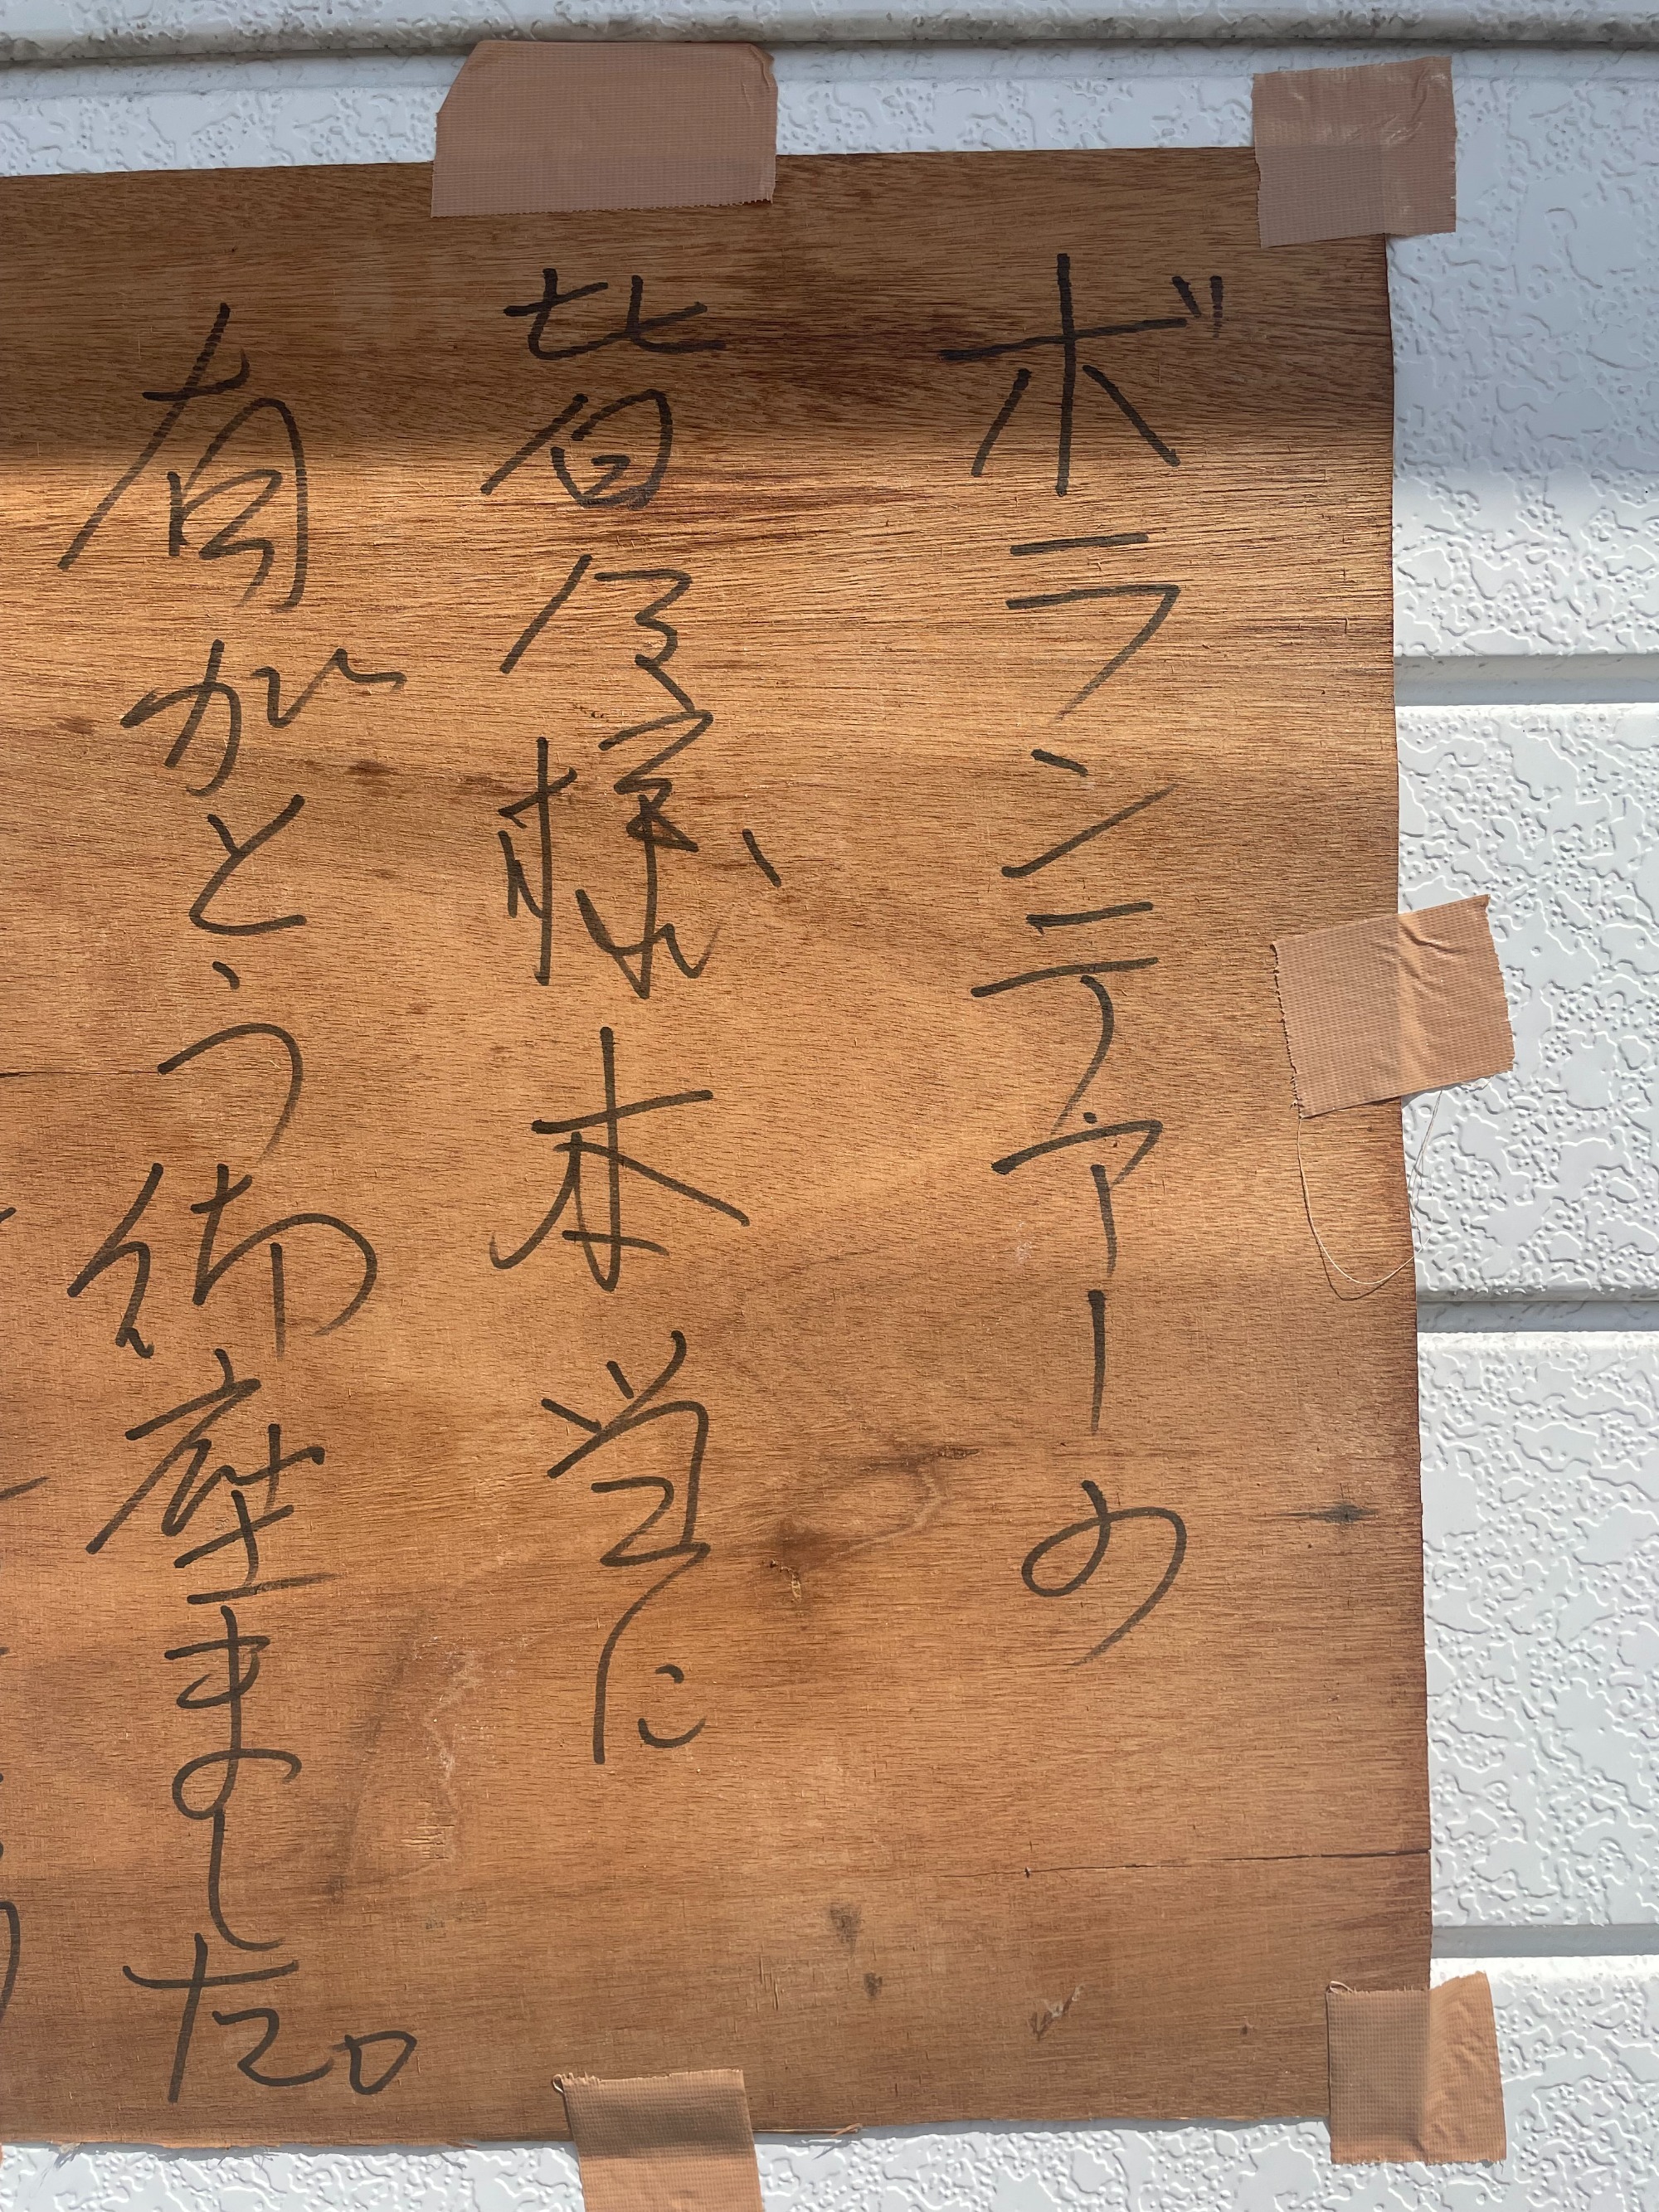 ボランテアーの
皆々様、本当に
有がとう御座ました。